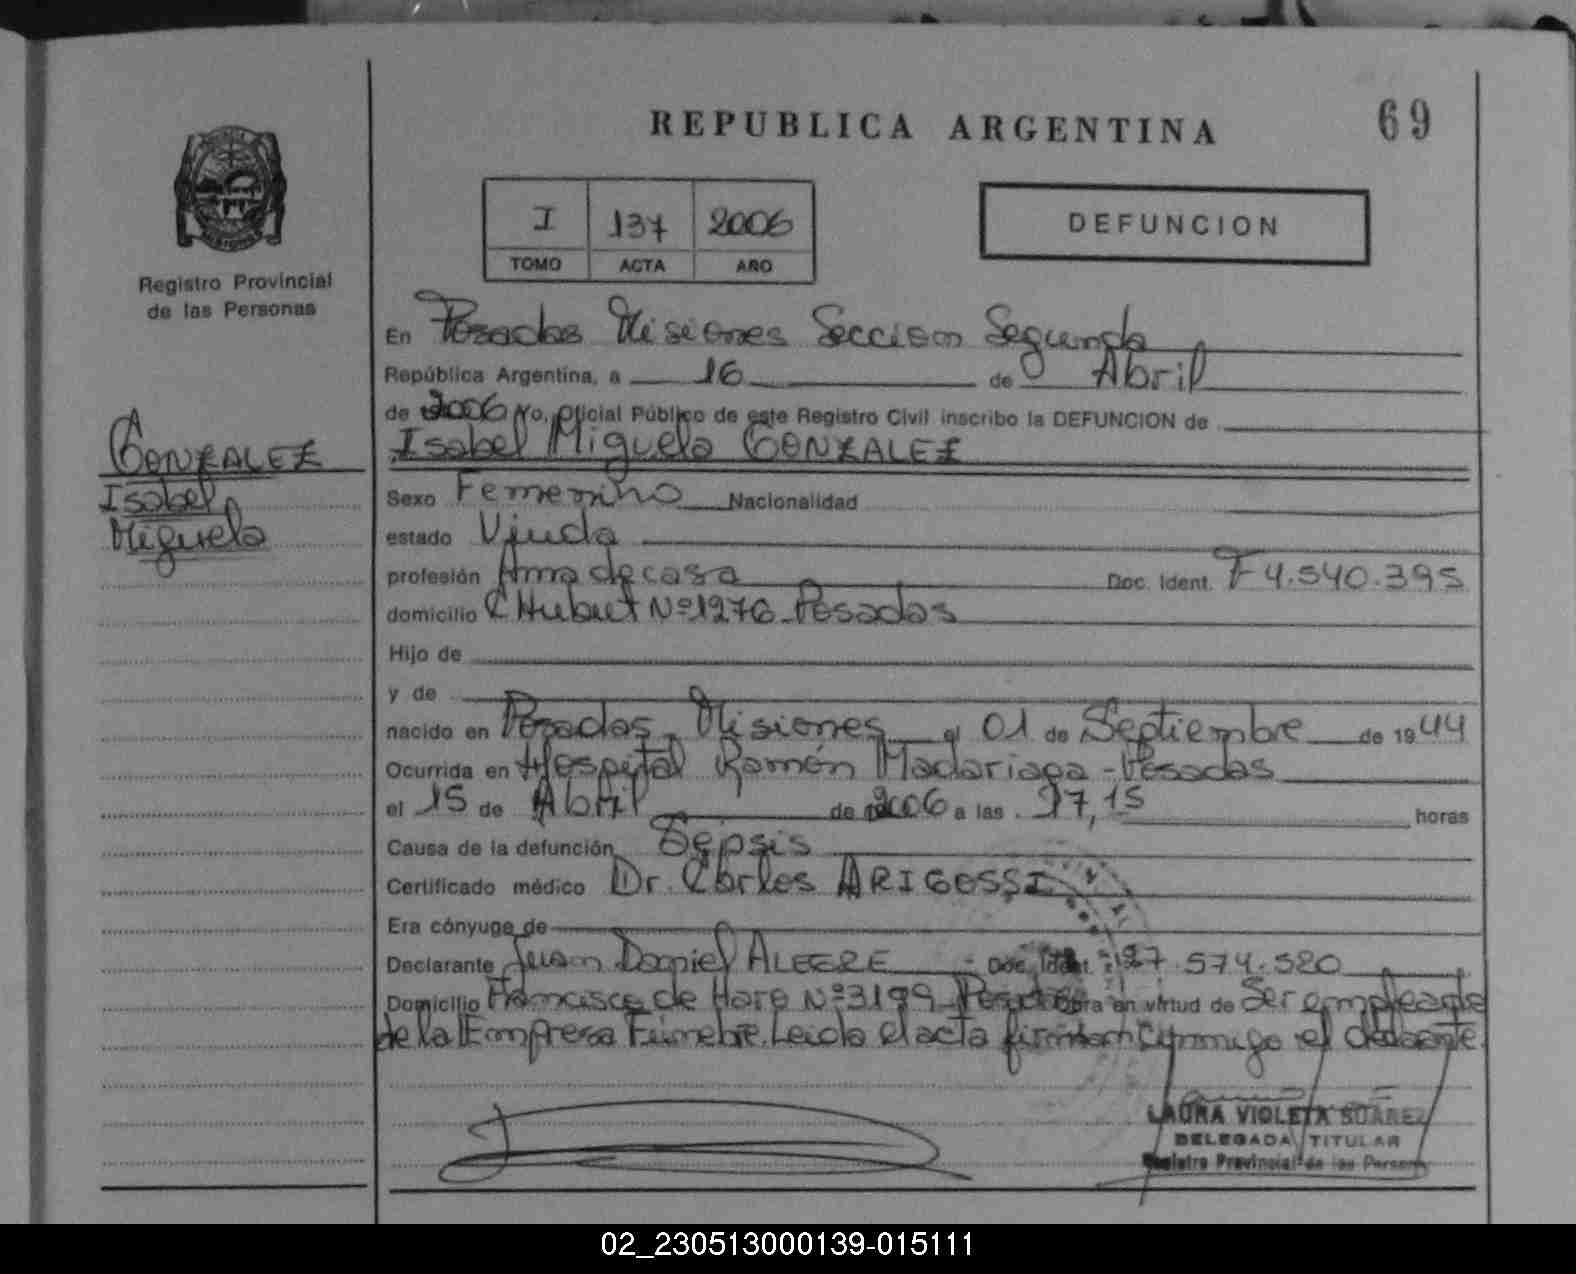 REPUBLICA ARGENTINA
69
I 137 2006
TOMO ACTA AÑO
DEFUNCION
Registro Provincial
de las Personas
En Posadas Misiones Seccion Segunda
República Argentina, a 16 de Abril
de 2006 Yo, Oficial Público de este Registro Civil inscribo la DEFUNCION de
Isabel Miguela GONZALEZ
GONZALEZ
Isabel
Miguela
Sexo Femenino Nacionalidad
estado Viuda
profesión Ama de casa Doc. Ident. F 4.540.395
domicilio CHubut Nº1276 Posadas
Hijo de
y de
nacido en Posadas, Misiones el 01 de Septiembre de 1944
Ocurrida en Hospital Ramón Madariaga - Posadas
el 15 de Abril de 2006 a las 17,15 horas
Causa de la defunción Sepsis
Certificado médico Dr. Carlos ARIGOSSI
Era cónyuge de
Declarante Juan Daniel ALEGRE Doc. Ident. 27.574.520
Domicilio Francisco de Haro Nº3199 Posadas Obra en virtud de Ser empleado
de la Empresa Fúnebre. Leida el acta firman conmigo el declarante.
LAURA VIOLETA SUAREZ
DELEGADA TITULAR
Registro Provincial de las Personas
02_230513000139-015111